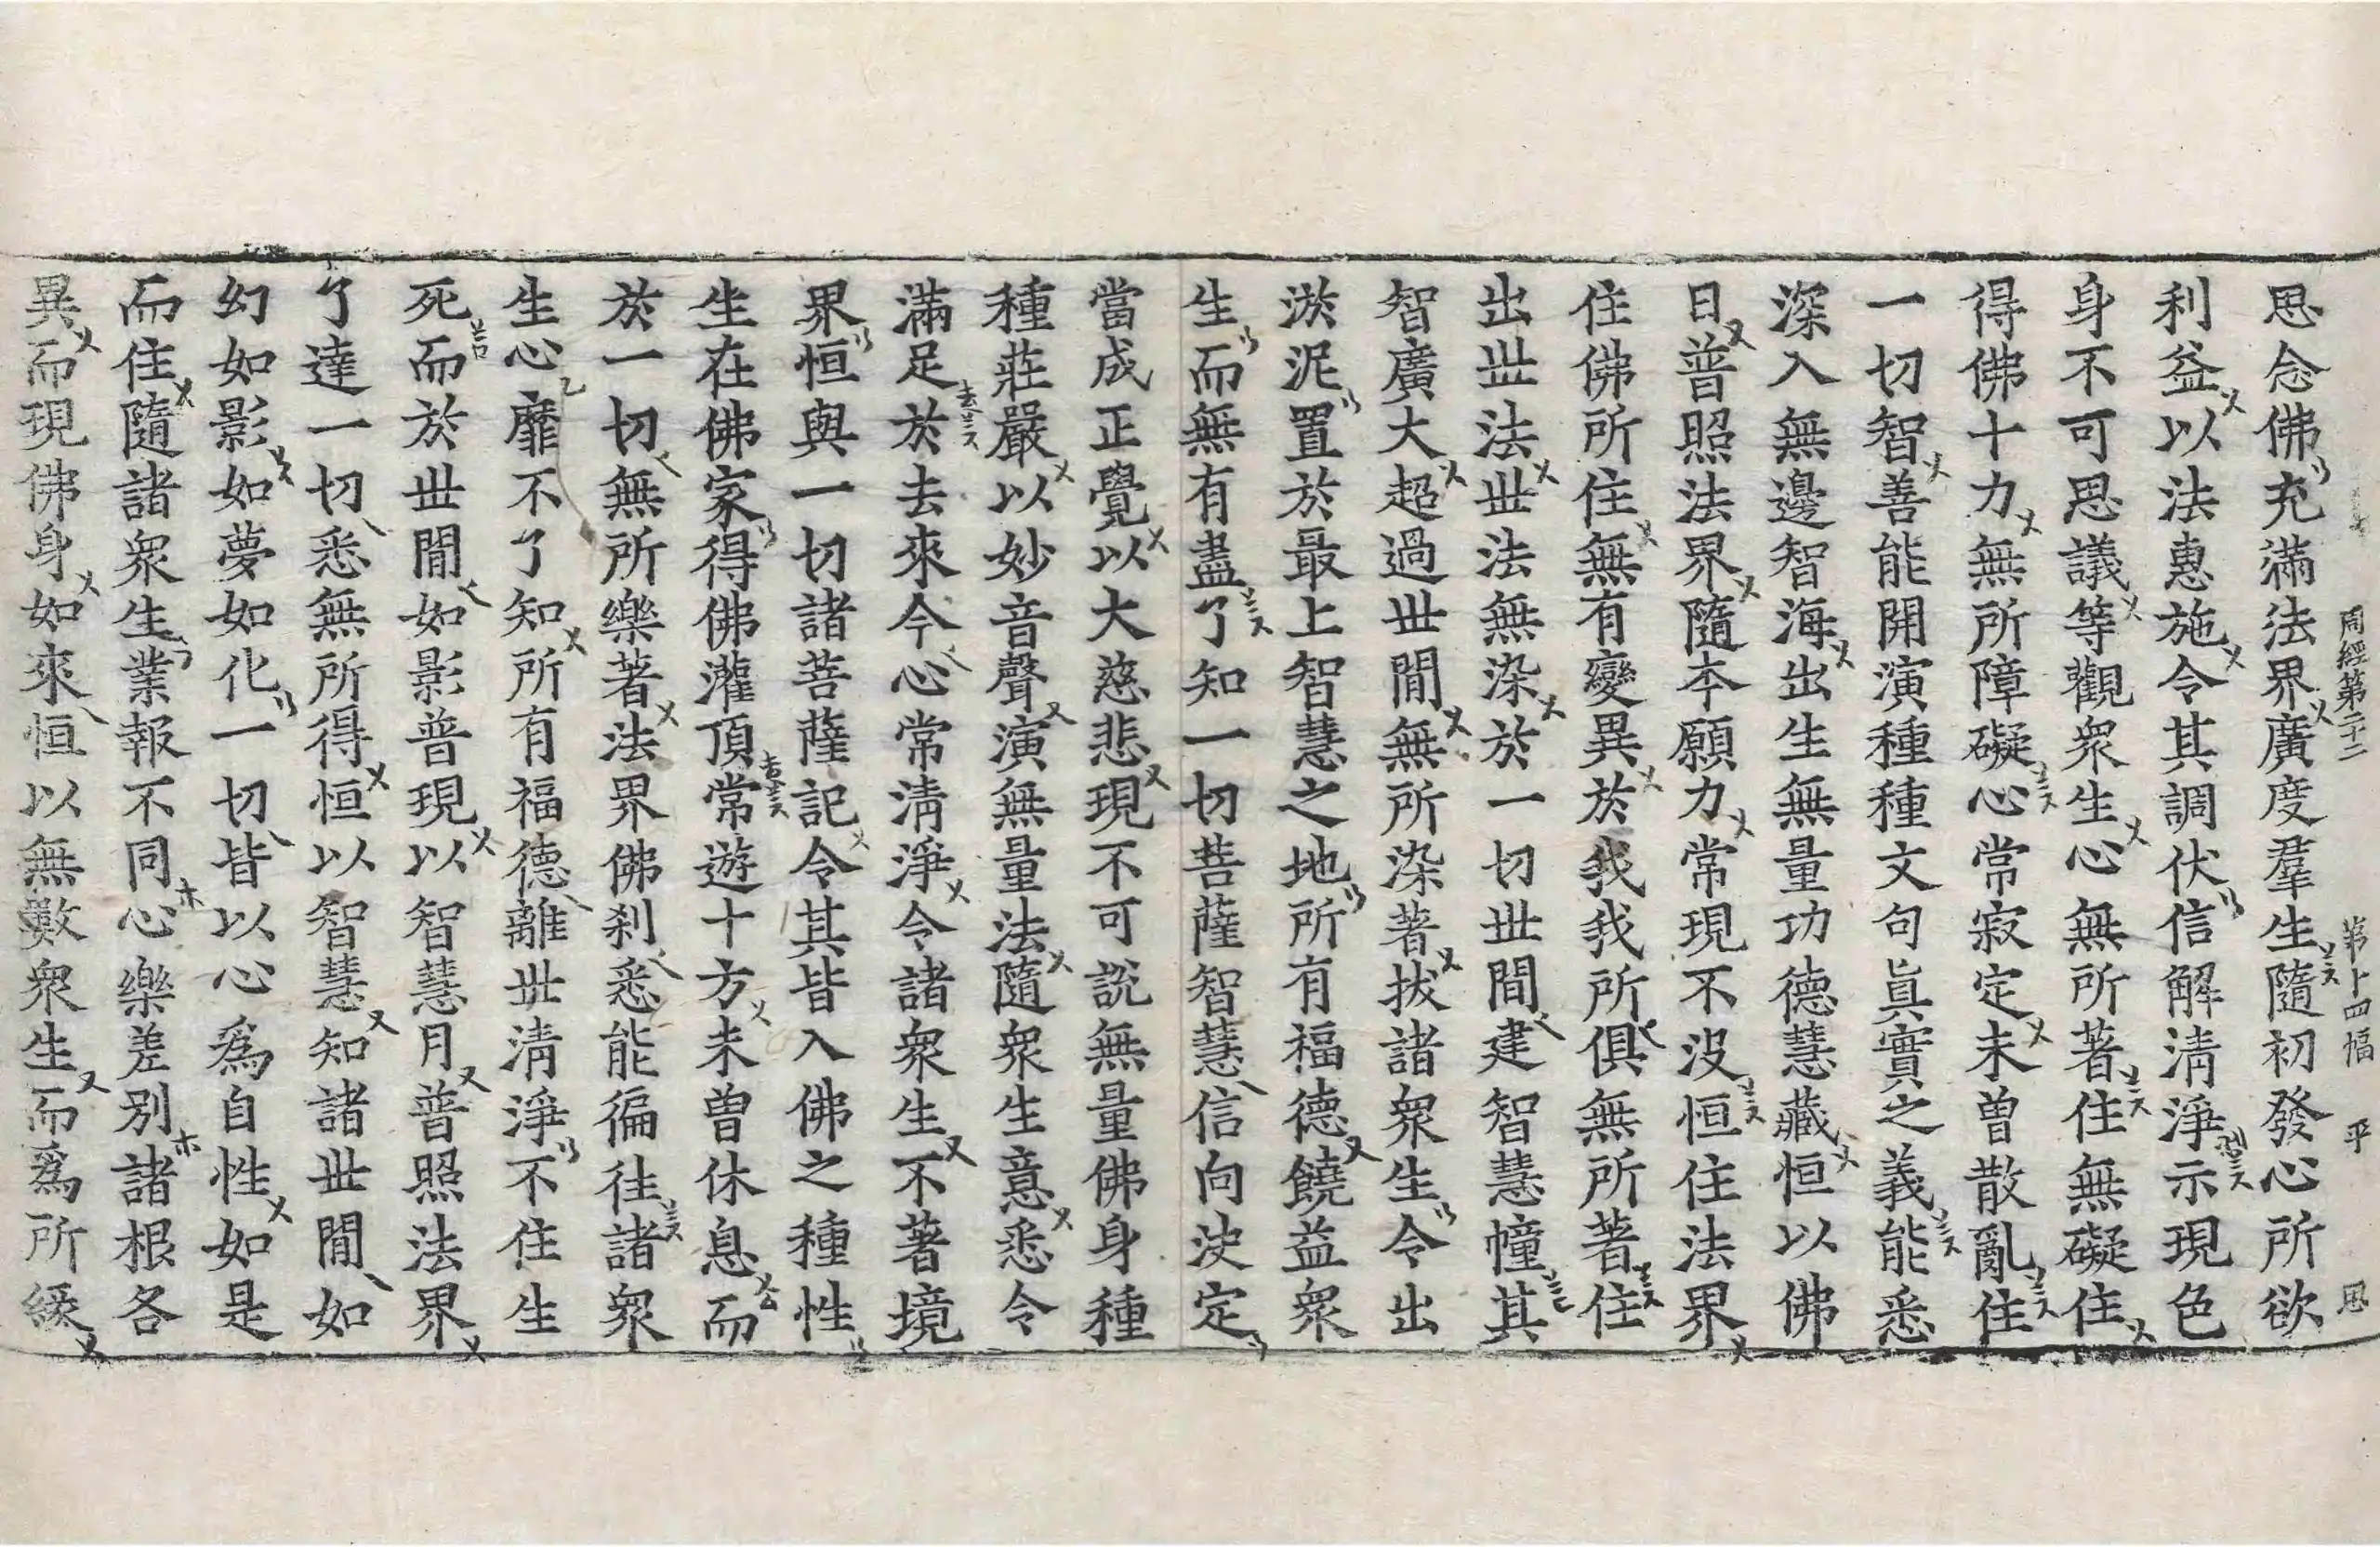 周經第二十二 第十四幅 平 恩
思念佛充滿法界廣度羣生隨初發心所欲
利益以法惠施令其調伏信解清淨示現色
身不可思議等觀衆生心無所著住無礙住
得佛十力無所障礙心常寂定未曾散亂住
一切智善能開演種種文句眞實之義能悉
深入無邊智海出生無量功德慧藏恒以佛
日普照法界隨本願力常現不沒恒住法界
住佛所住無有變異於我我所俱無所著住
出世法世法無染於一切世間建智慧幢其
智廣大超過世間無所染著拔諸衆生令出
淤泥置於最上智慧之地所有福德饒益衆
生而無有盡了知一切菩薩智慧信向決定
當成正覺以大慈悲現不可說無量佛身種
種莊嚴以妙音聲演無量法隨衆生意悉令
滿足於去來今心常清淨令諸衆生不著境
界恒與一切諸菩薩記令其皆入佛之種性
生在佛家得佛灌頂常遊十方未曾休息而
於一切無所樂著法界佛刹悉能徧往諸衆
生心靡不了知所有福德離世清淨不住生
死而於世間如影普現以智慧月普照法界
了達一切悉無所得恒以智慧知諸世間如
幻如影如夢如化一切皆以心爲自性如是
而住隨諸衆生業報不同心樂差別諸根各
異而現佛身如來恒以無數衆生而爲所緣